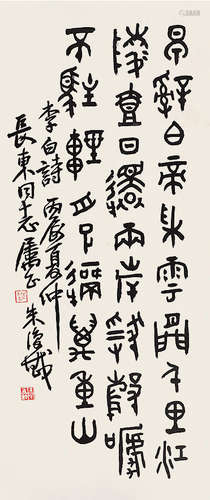 朝辭白帝采雲間千里江
陵壹日還兩岸猿聲啼
不駐輕舟已過萬重山
李白詩 丙辰夏仲
長東同志屬正 朱復戡